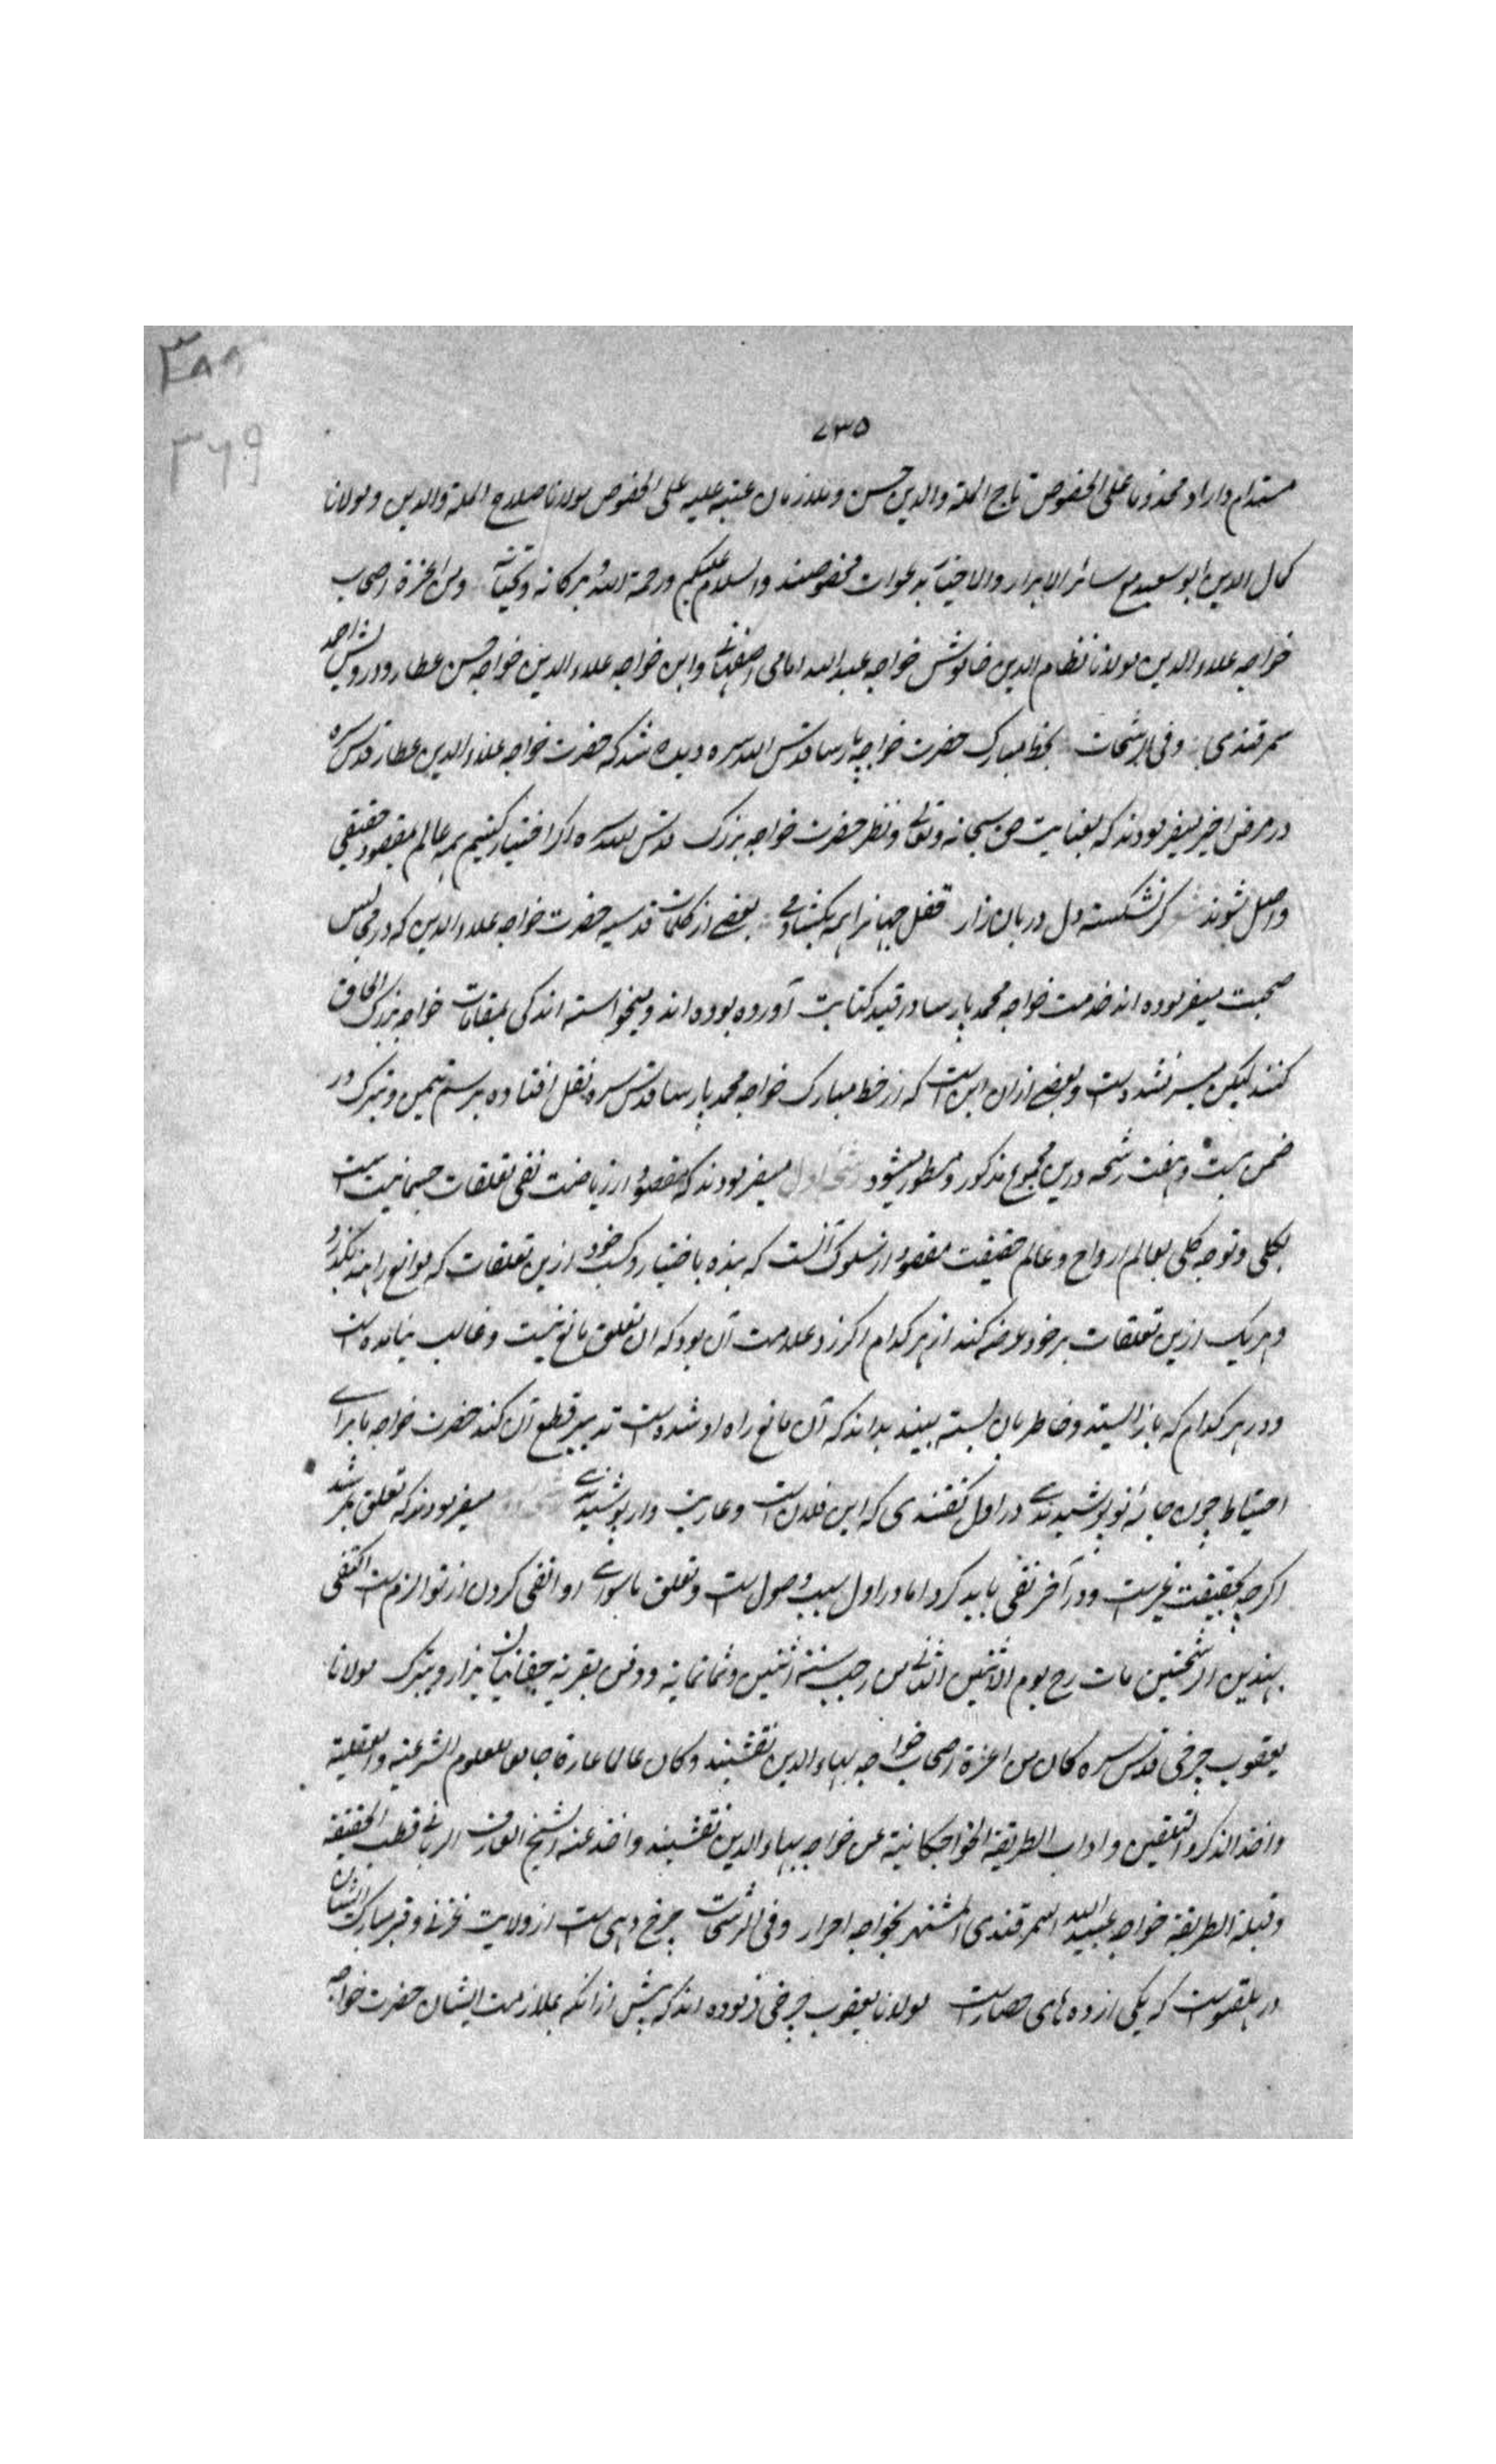 ۳۸۸
۳۶۹
۷۳۵
مستدام داراد و مخدومنا علی الخصوص تاج الملة والدین حسن و ملازمان عتبه علیه علی الخصوص مولانا صلاح الملة والدین و مولانا
کمال الدین ابو سعید مع سائر الابرار والاخیار بدعوات مخصوصند والسلام علیکم ورحمة الله و برکاته وتحیاته ومن اعزة اصحاب
خواجه علاء الدین مولانا نظام الدین خاموش خواجه عبد الله امامی اصفهانی وابن خواجه علاء الدین خواجه حسن عطار ودرویش احمد
سمرقندی وفی الرشحات بخط مبارک حضرت خواجه پارسا قدس الله سره دیده شد که حضرت خواجه علاء الدین عطار قدس سره
در مرض اخیر میفرمودند که بعنایت حق سبحانه وتعالی ونظر حضرت خواجه بزرک قدس الله سره اکر اختیار کنیم همه عالم بمقصود حقیقی
واصل شوند کر نشکستی دل دربان راز قفل جهانرا همه بکشادمی بعضی از کلمات قدسیه حضرت خواجه علاء الدین که در مجالس
صحبت میفرموده اند خدمت خواجه محمد پارسا در قید کتابت آورده بوده اند ومیخواسته اند کی بمقامات خواجه بزرک الحاق
کنند لیکن میسر نشده است وبعضی ازان این است که از خط مبارک خواجه محمد پارسا قدس سره نقل افتاده برسم تیمن وتبرک در
ضمن بیست وهفت رشحه درین مجموع مذکور ومسطور میشود رشحه اول میفرمودند که مقصود از ریاضت نفی تعلقات جسمانیت است
بکلی وتوجه کلی بعالم ارواح وعالم حقیقت مقصود از سلوک آنست که بنده باختیار وکسب خود ازین تعلقات که موانع راهند بکذرد
وهر یک ازین تعلقات بر خود عرضه کند از هر کدام که کزرد علامت آن بود که آن تعلق مانع نیست وغالب نیامده است
ودر هر کدام که باز ایستد وخاطر بان بسته بیند بداند که آن مانع راه او شده است تدبیر قطع آن کند حضرت خواجه ما برای
احتیاط چون جامه نو پوشیدندی در اول کفتندی که این فلان است وعاریت وار پوشیدندی میفرمودند که تعلق بمرشد
اکرچه بحقیقت غیر است ودر آخر نفی باید کرد اما در اول سبب وصول است وتعلق ماسوای او را نفی کردن از لوازم است اکتفی
بهذین الرشحتین مات رح یوم الاثنین الثانی من رجب سنة اثنتین وثمانمایة ودفن بقریة چغانیان یزار ویتبرک مولانا
یعقوب چرخی قدس سره کان من اعزة اصحاب خواجه بهاء الدین نقشبند وکان عالما عارفا جامعا للعلوم الشرعیة والعقلیة
واخذ الذکر والتلقین واداب الطریقة الخواجکانیة عن خواجه بهاء الدین نقشبند واخذ عنه الشیخ العارف الربانی قطب الحقیقة
وقبلة الطریقة خواجه عبید الله السمرقندی المشتهر بخواجه احرار وفی الرشحات چرخ دهی است از ولایت غزنی وقبر مبارک ایشان
در هلفتو است که یکی از ده های حصار است مولانا یعقوب چرخی فرموده اند که پیش ازانکه بملازمت ایشان حضرت خواجه